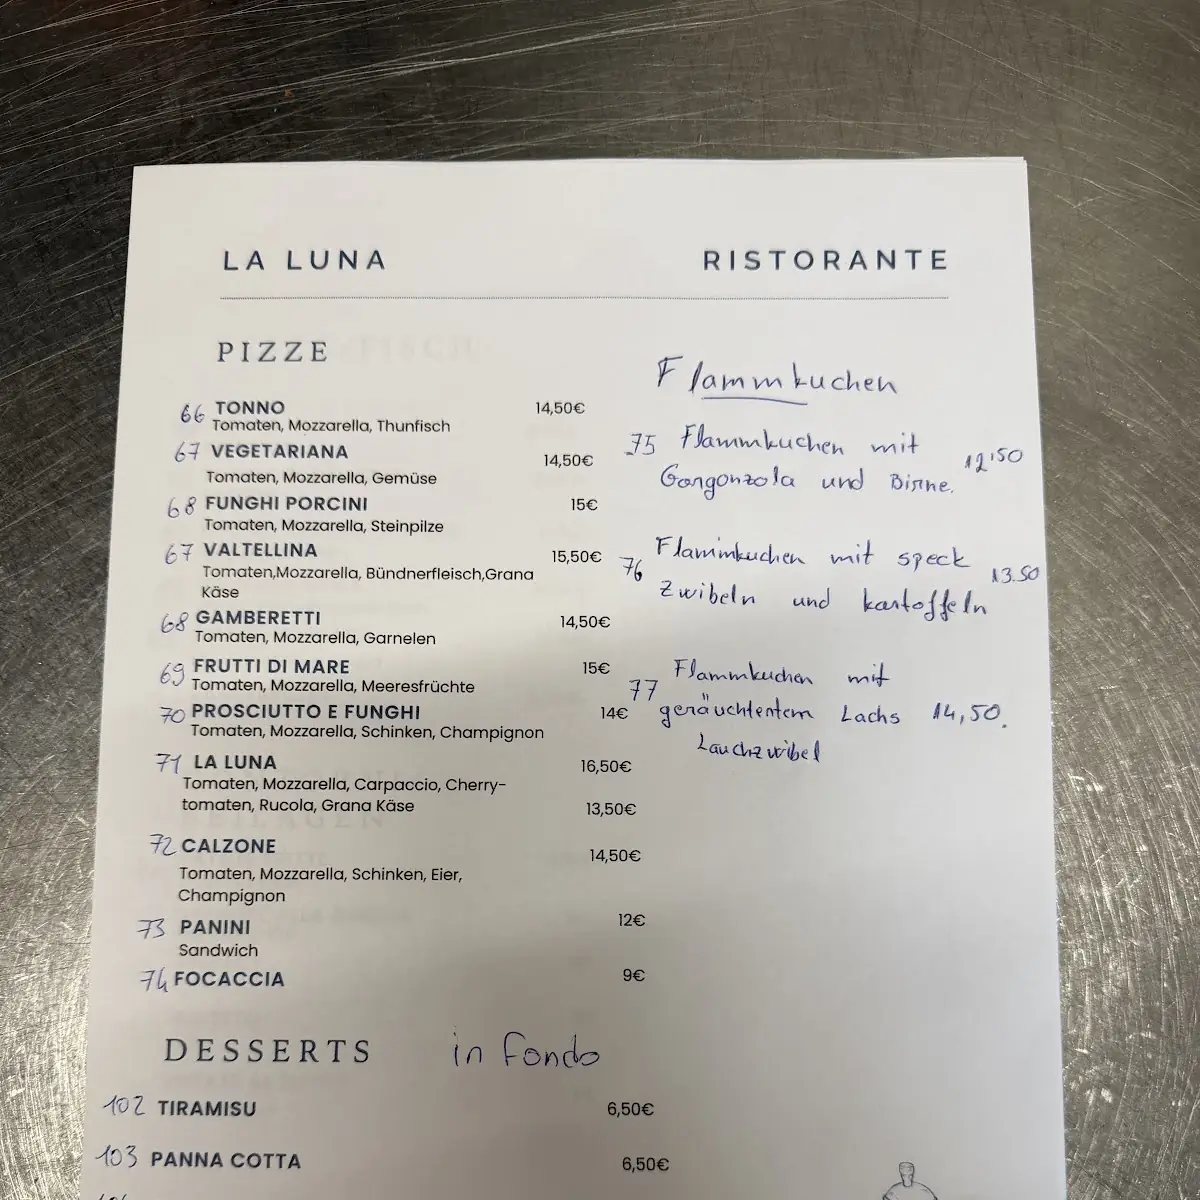 LA LUNA RISTORANTE
PIZZE
66 TONNO 14,50€
Tomaten, Mozzarella, Thunfisch
67 VEGETARIANA 14,50€
Tomaten, Mozzarella, Gemüse
68 FUNGHI PORCINI 15€
Tomaten, Mozzarella, Steinpilze
67 VALTELLINA 15,50€
Tomaten,Mozzarella, Bündnerfleisch,Grana
Käse
68 GAMBERETTI 14,50€
Tomaten, Mozzarella, Garnelen
69 FRUTTI DI MARE 15€
Tomaten, Mozzarella, Meeresfrüchte
70 PROSCIUTTO E FUNGHI 14€
Tomaten, Mozzarella, Schinken, Champignon
71 LA LUNA 16,50€
Tomaten, Mozzarella, Carpaccio, Cherry-
tomaten, Rucola, Grana Käse 13,50€
72 CALZONE 14,50€
Tomaten, Mozzarella, Schinken, Eier,
Champignon
73 PANINI 12€
Sandwich
74 FOCACCIA 9€
Flammkuchen
75 Flammkuchen mit
Gorgonzola und Birne. 12,50
76 Flammkuchen mit speck
Zwibeln und kartoffeln 13.50
77 Flammkuchen mit
geräuchtentem Lachs 14,50.
Lauchzwibel
DESSERTS in fondo
102 TIRAMISU 6,50€
103 PANNA COTTA 6,50€